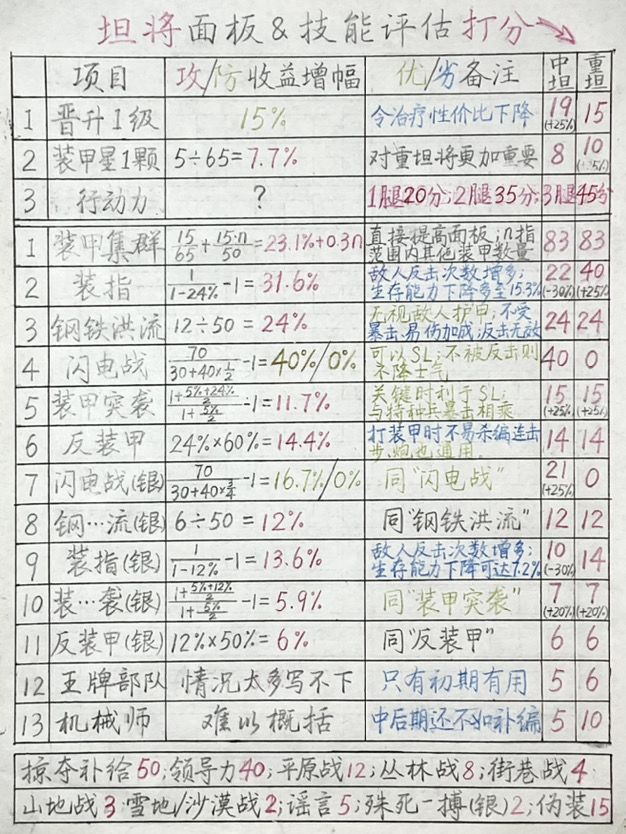 坦将面板&技能评估打分
项目 攻/防收益增幅 优/劣备注 中坦 重坦
1 晋升1级 15% 令治疗性价比下降 19(+25%) 15
2 装甲星1颗 5÷65=7.7% 对重坦将更加重要 8 10(+25%)
3 行动力 ? 1腿20分;2腿35分;3腿45分
1 装甲集群 15/65+15·n/50=23.1%+0.3n 直接提高面板;n指范围内其他装甲数量 83 83
2 装指 1/(1-24%)-1=31.6% 敌人反击次数增多;生存能力下降多至15.3% 22(-30%) 40(+25%)
3 钢铁洪流 12÷50=24% 无视敌人护甲;不受暴击、易伤加成;反击无效 24 24
4 闪电战 70/(30+40×1/2)-1=40%/0% 可以SL;不被反击则不降士气 40 0
5 装甲突袭 (1+(5%+24%)/2)/(1+5%/2)-1=11.7% 关键时利于SL;与特种兵暴击相乘 15(+25%) 15(+25%)
6 反装甲 24%×60%=14.4% 打装甲时不易杀编连击步、炮也通用. 14 14
7 闪电战(银) 70/(30+40×3/4)-1=16.7%/0% 同"闪电战" 21(+25%) 0
8 钢…流(银) 6÷50=12% 同"钢铁洪流" 12 12
9 装指(银) 1/(1-12%)-1=13.6% 敌人反击次数增多;生存能力下降可达7.2% 10(-30%) 14
10 装…袭(银) (1+(5%+12%)/2)/(1+5%/2)-1=5.9% 同"装甲突袭" 7(+20%) 7(+20%)
11 反装甲(银) 12%×50%=6% 同"反装甲" 6 6
12 王牌部队 情况太多写不下 只有初期有用 5 6
13 机械师 难以概括 中后期还不如补编 5 10
掠夺补给50;领导力40;平原战12;丛林战8;街巷战4
山地战3 雪地/沙漠战2;谣言5;殊死一搏(银)2;伪装15